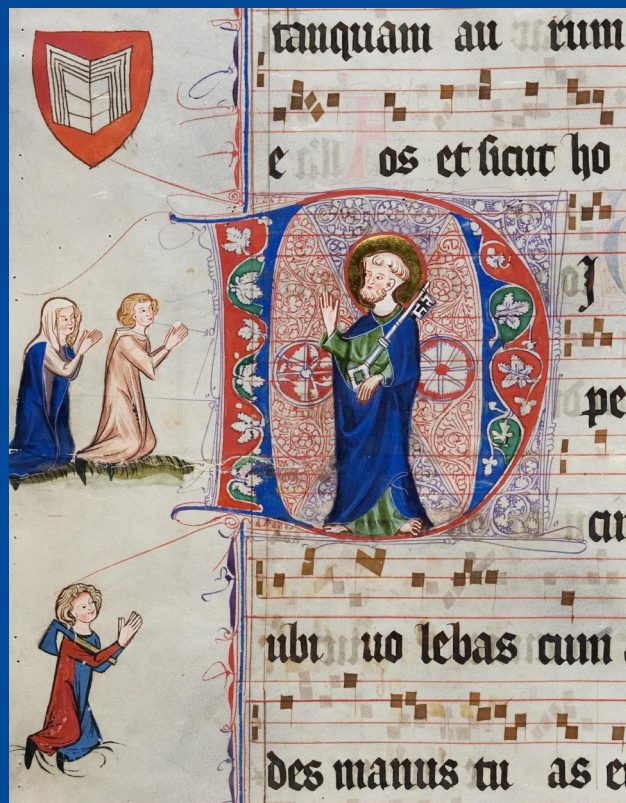 tanquam au rum
e os et sicut ho
pe
ubi uo lebas cum
des manus tu as